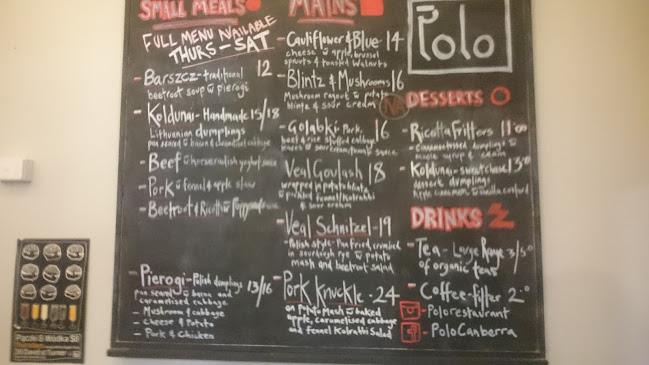 SMALL MEALS
FULL MENU AVAILABLE
THURS - SAT
- Barszcz - traditional 12
beetroot soup w pierogi
- Koldunai - Handmade 15/18
Lithuanian dumplings
pan seared w bacon & caramelised cabbage
- Beef w horseradish yoghurt sauce
- Pork w fennel & apple slaw
- Beetroot & Ricotta w
- Pierogi - Polish dumplings 13/16
pan seared w bacon and
caramelised cabbage
- Mushroom & cabbage
- Cheese & Potato
- Pork & Chicken
MAINS
- Cauliflower & Blue 14
cheese w apple, brussel
sprouts & toasted walnuts
- Blintz & Mushrooms 16
Mushroom ragout w potato
blintz & sour cream
- Golabki - Pork, 16
beef & rice stuffed cabbage
leaves w sour cream/tomato sauce
Veal Goulash 18
wrapped in potato blintz,
w pickled fennel/Kolrabhi
& sour cream
- Veal Schnitzel - 19
- Polish style - Pan fried, crumbed
in sourdough rye w potato
mash and beetroot salad
- Pork Knuckle - 24
on Potato Mash w baked
apple, caramelised cabbage
and fennel Kolrabhi Salad
Polo
DESSERTS
- Ricotta Fritters 11
- Cinnamon dusted dumplings w
maple syrup & cream
- Koldunai - sweet cheese 13
dessert dumplings
apple cinnamon w vanilla custard
DRINKS
- Tea - Large Range 3/5
of organic teas
- Coffee - filter 2
- Polorestaurant
- PoloCanberra
Pączki & Wodka $8